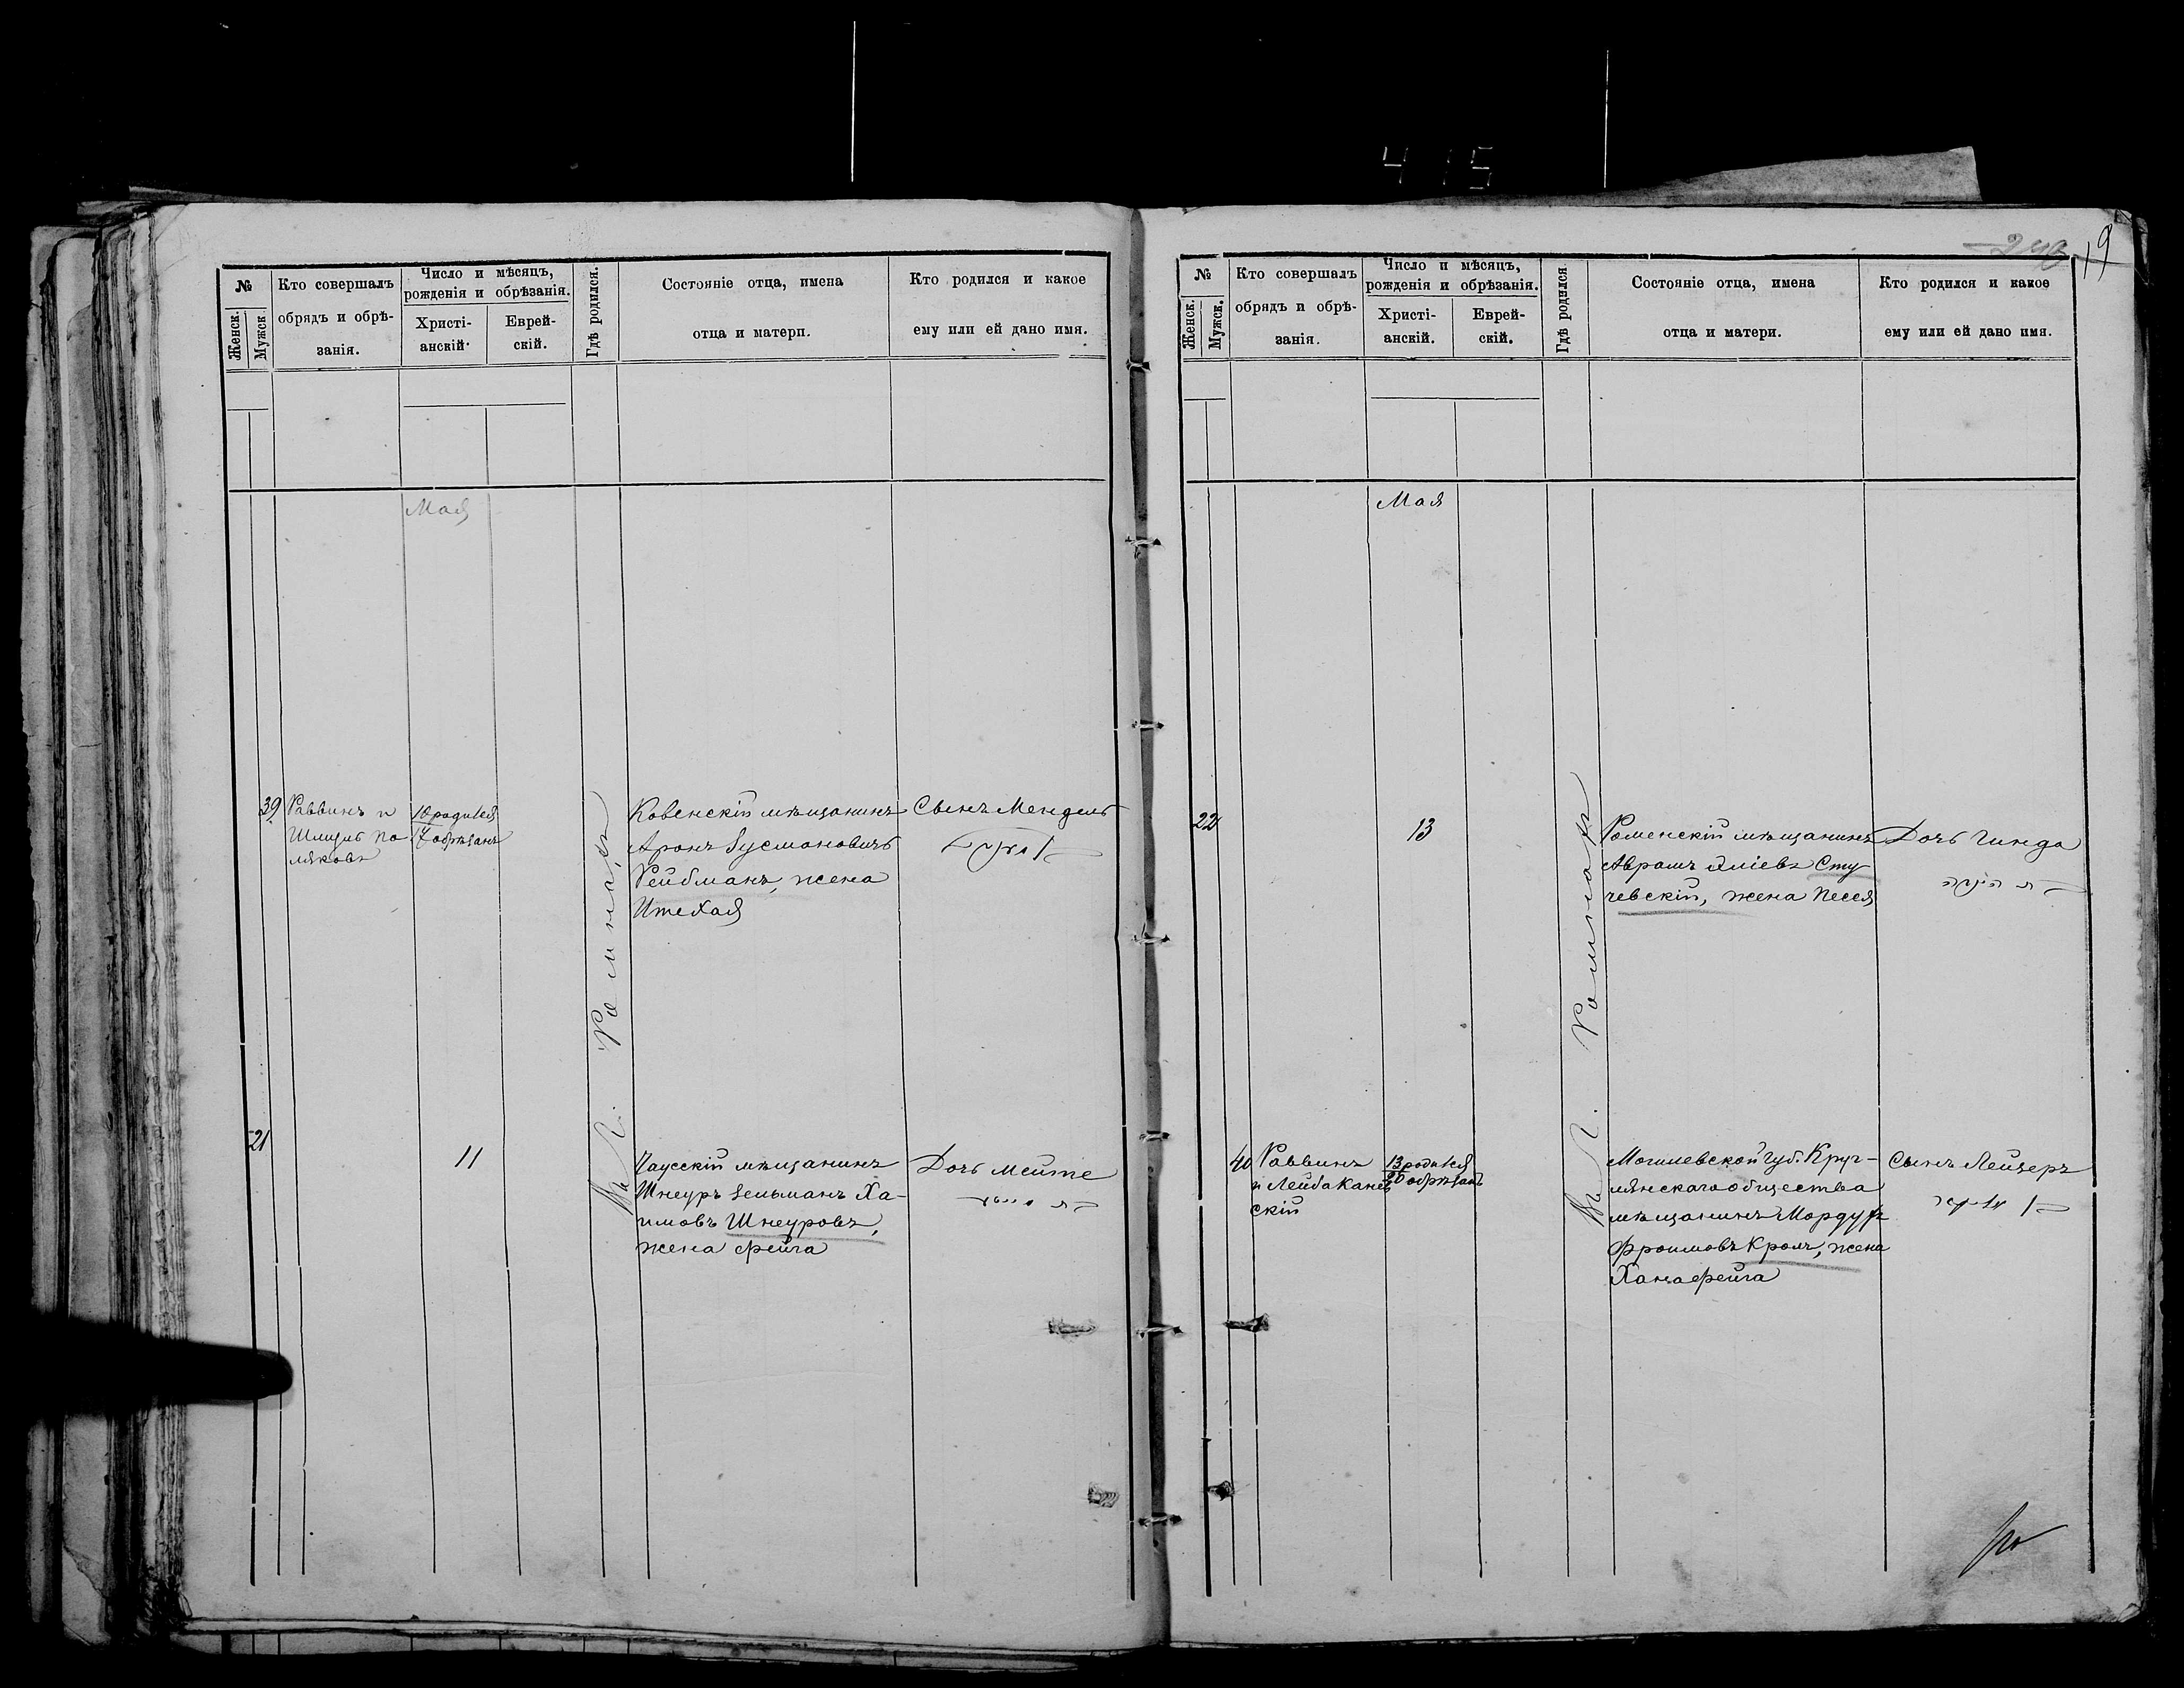 415
19
№
Женск.
Мужск.
Кто совершалъ
обрядъ и обрѣ-
занія.
Число и мѣсяцъ,
рожденія и обрѣзанія.
Христі-
анскій.
Еврей-
скій.
Гдѣ родился.
Состояніе отца, имена
отца и матери.
Кто родился и какое
ему или ей дано имя.
Мая
39
Раввинъ и
Шлиумъ По-
ляковъ
10 родился
17 обрѣзанъ
Въ г. Ромнахъ
Ковенскій мѣщанинъ
Аронъ Зусмановичъ
Рейбманъ, жена
Итехая
Сынъ Мендель
21
11
Чаусскій мѣщанинъ
Шнеуръ Зельманъ Ха-
имовъ Шнеуровъ,
жена Фейга
Дочь Мейте
№
Женск.
Мужск.
Кто совершалъ
обрядъ и обрѣ-
занія.
Число и мѣсяцъ,
рожденія и обрѣзанія.
Христі-
анскій.
Еврей-
скій.
Гдѣ родился
Состояніе отца, имена
отца и матери.
Кто родился и какое
ему или ей дано имя.
Мая
22
13
Въ г. Ромнахъ
Роменскій мѣщанинъ
Аврамъ Эліевъ Сту-
чевскій, жена Песея
Дочь Гинда
40
Раввинъ
и Лейба Канев
скій
13 родился
20 обрѣзанъ
Могилевской губ. Круг-
лянскаго общества
мѣщанинъ Мордухъ
Фроимовъ Кролъ, жена
Хана Фейга
Сынъ Лейзеръ